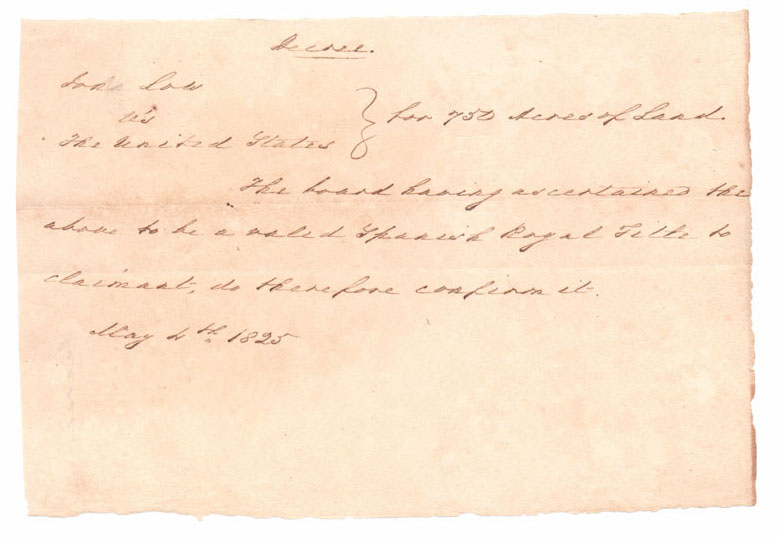 Decree.
John Low
vs
The United States } for 750 Acres of Land.
The board having ascertained the
above to be a valid Spanish Royal Title to
claimant, do therefore confirm it.
May 4th. 1825